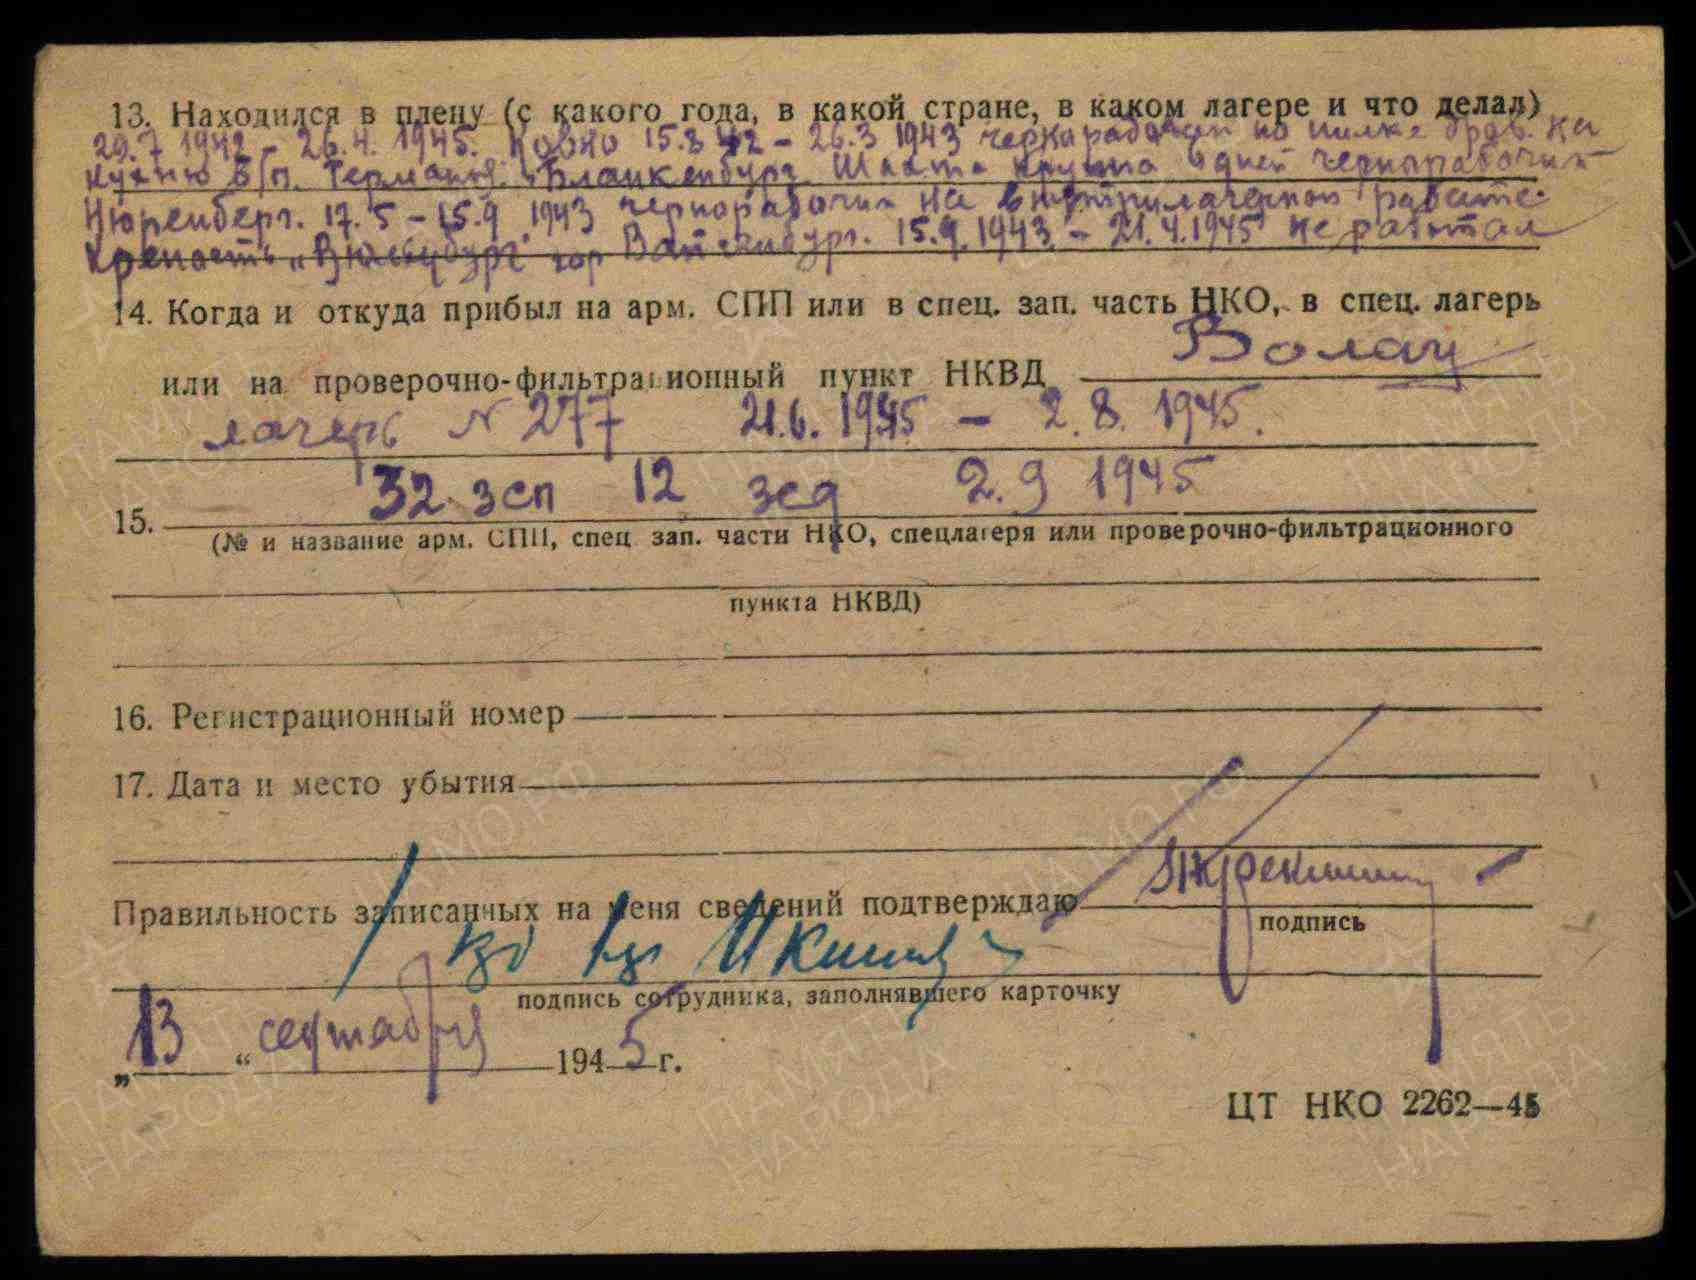 13. Находился в плену (с какого года, в какой стране, в каком лагере и что делал)
29.7 1942 - 26.4. 1945. Ковно 15.8 42 - 26.3 1943 чернорабочий по пилке дров. на
кухню б/п. Германия. Бланкенбург. чернорабочий
Нюренберг. 17.5 - 15.9 1943 чернорабочий на внутрилагерной работе.
Крепость „Вюльцбург" гор Вайсенбург. 15.9.1943 - 21.4.1945 не работал
14. Когда и откуда прибыл на арм. СПП или в спец. зап. часть НКО, в спец. лагерь
или на проверочно-фильтрационный пункт НКВД
лагерь № 277 21.6. 1945 - 2.8. 1945.
32 зсп 12 зсд 2.9 1945
15.
(№ и название арм. СПП, спец зап. части НКО, спецлагеря или проверочно-фильтрационного
пункта НКВД)
16. Регистрационный номер
17. Дата и место убытия
Правильность записанных на меня сведений подтверждаю
подпись
подпись сотрудника, заполнявшего карточку
„13 “ сентября 1945 г.
ЦТ НКО 2262—45
ПАМЯТЬ НАРОДА